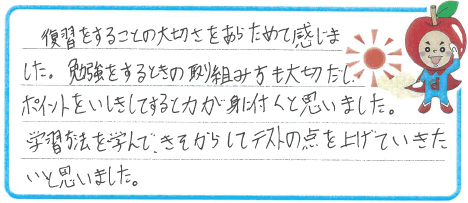 復習をすることの大切さをあらためて感じま
した。勉強をするときの取り組み方も大切だし
ポイントをいしきしてすると力が身に付くと思いました。
学習方法を学んで、きそからしてテストの点を上げていきた
いと思いました。
d